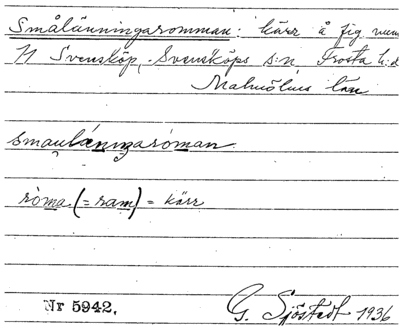 Smålänningaromman: kärr å fig num
H Svensköp, Svensköps s:n, Frosta h:d
Malmöhus län
smaulánningaróman
róma (= ram) = kärr
Nr 5942. G. Sjöstedt 1936